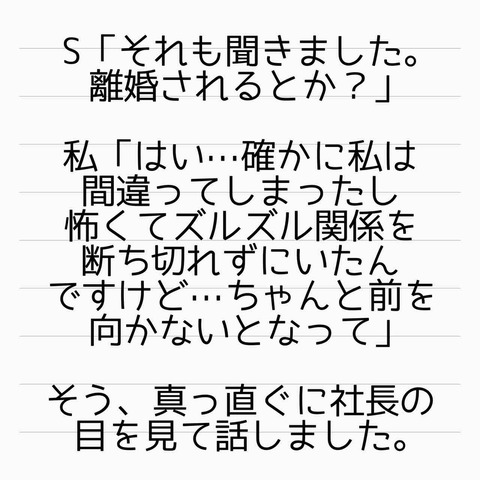 S「それも聞きました。
離婚されるとか？」
私「はい…確かに私は
間違ってしまったし
怖くてズルズル関係を
断ち切れずにいたん
ですけど…ちゃんと前を
向かないとなって」
そう、真っ直ぐに社長の
目を見て話しました。